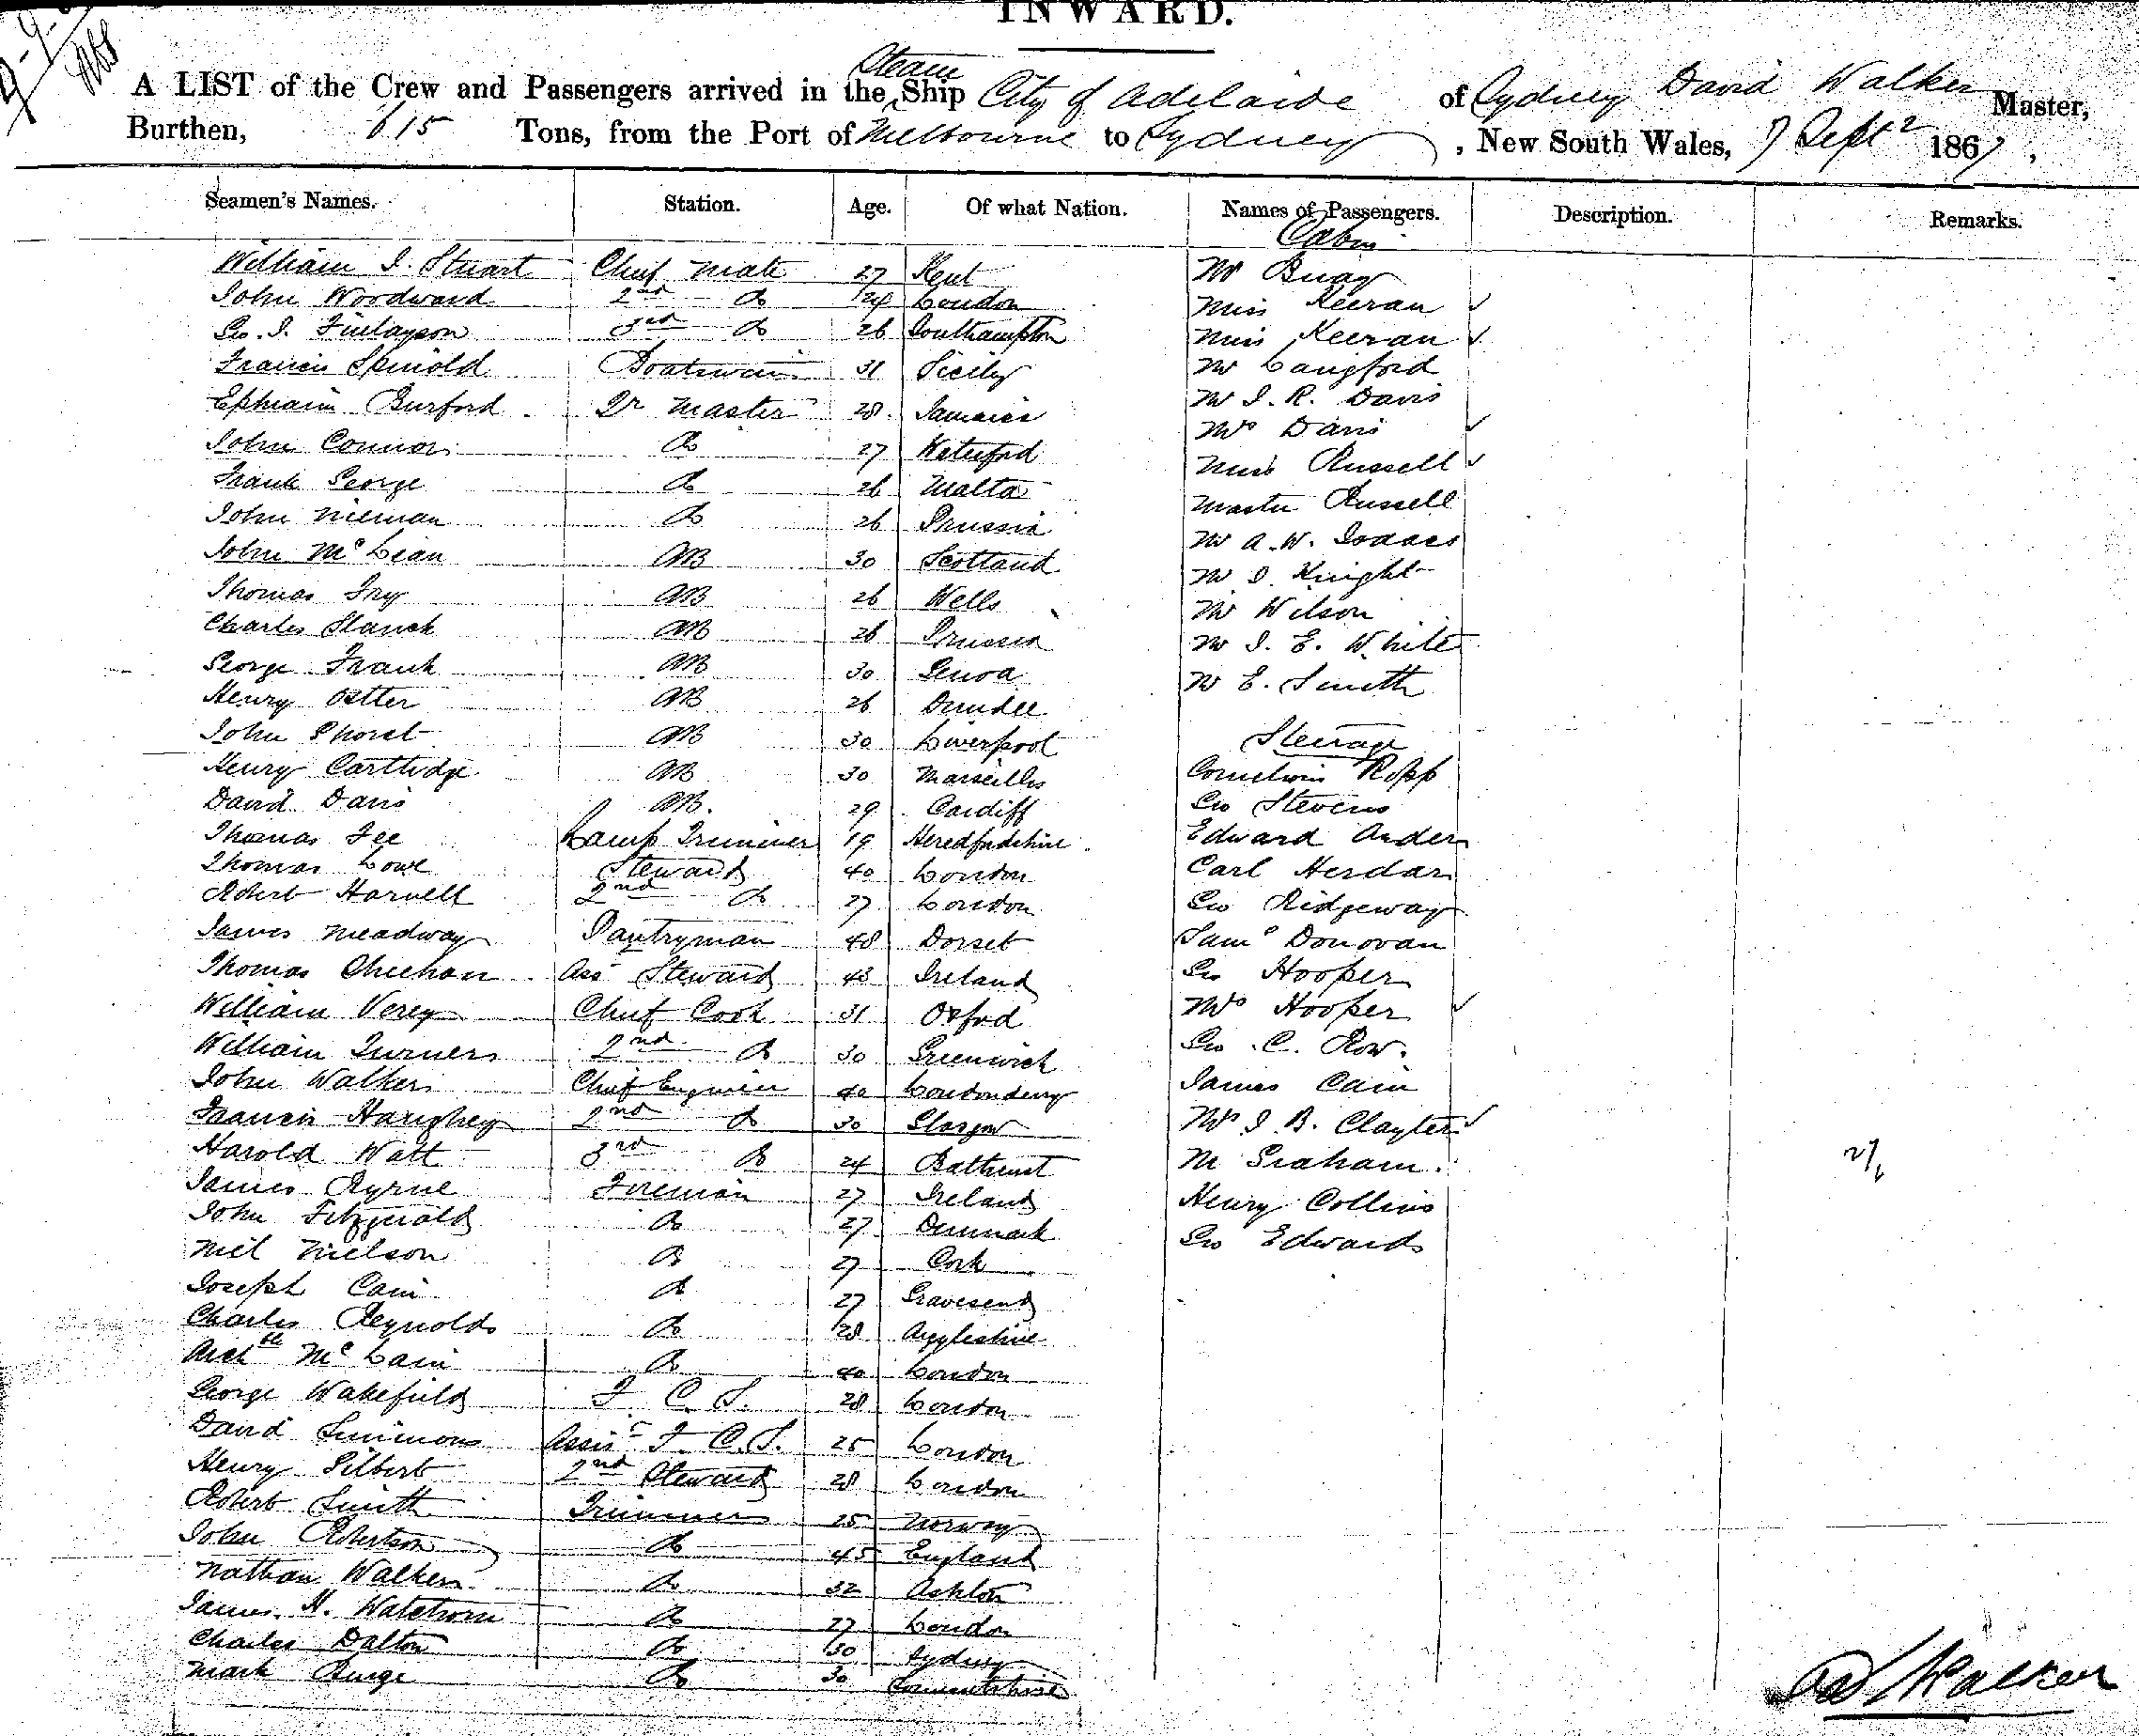 INWARD.
A LIST of the Crew and Passengers arrived in the Steam Ship City of Adelaide of Sydney David Walker Master,
Burthen, 615 Tons, from the Port of Melbourne to Sydney, New South Wales, 7 Sept 1867,
Seamen's Names. Station. Age. Of what Nation. Names of Passengers. Description. Remarks.
Cabin
William J. Stuart Chief Mate 27 Kent Mr Buay
John Woodward 2nd Do 24 London Miss Keeran ✓
Geo. J. Finlayson 3rd Do 26 Southampton Miss Keeran ✓
Francis Spinold Boatswain 31 Sicily Mr Langford
Ephraim Burford Qr Master 28 Jamaica Mr J. R. Davis
John Connor Do 27 Waterford Mrs Davis ✓
Frank George Do 26 Malta Miss Russell ✓
John Nieman Do 26 Prussia Master Russell
John McLean AB 30 Scotland Mr A. W. Isaacs
Thomas Fry AB 26 Wells Mr J. Knight
Charles Stanck AB 26 Prussia Mr Wilson
George Frank AB 30 Genoa Mr J. E. White
Henry Ostter AB 26 Dundee Mr E. Smith
John Phorst AB 30 Liverpool Steerage
Henry Carttidge AB 30 Marseilles Cornelius Ropp
David Davis AB. 29 Cardiff Geo Stevens
Thomas Fee Lamp Trimmer 19 Heredfordshire Edward Anders
Thomas Lowe Steward 40 London Carl Herdar
Robert Harvell 2nd Do 27 London Geo Ridgeway
James Meadway Pantryman 48 Dorset Saml Donovan
Thomas Sheehan Ass Steward 43 Ireland Geo Hooper
William Verey Chief Cook 31 Oxford Mrs Hooper ✓
William Turner 2nd Do 30 Greenwich Geo C. Row.
John Walker Chief Engineer 40 Londonderry James Cain
Francis Haughey 2nd Do 30 Glasgow Mrs J. B. Clayter ✓
Harold Watt 3rd Do 24 Bathurst M Graham.
James Byrne Fireman 27 Ireland Henry Collins
John Fitzgerald Do 27 Denmark Geo Edwards
Neil Nielson Do 27 Cork
Joseph Cain Do 27 Gravesend
Charles Reynolds Do 28 Argyleshire
Archd McLain Do 40 London
George Wakefield F. C. S. 28 London
David Simmons Assist F. C. S. 25 London
Henry Gilbert 2nd Steward 28 London
Robert Smith Trimmer 25 Norway
John Robertson Do 45 England
Nathan Walker Do 32 Ashton
James H. Watchorn Do 27 London
Charles Dalton Do 30 Sydney
Mark Burge Do 30
Dd Walker